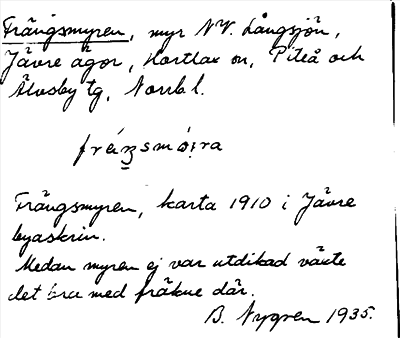 Frängsmyren, myr NV. Långsjön,
Jävre ägor, Hortlax sn, Piteå och
Älvsby tg, Norrb. l.
Frängsmyren, karta 1910 i Jävre
byaskrin.
Medan myren ej var utdikad växte
det bra med fräkne där.
B. Nygren 1935.